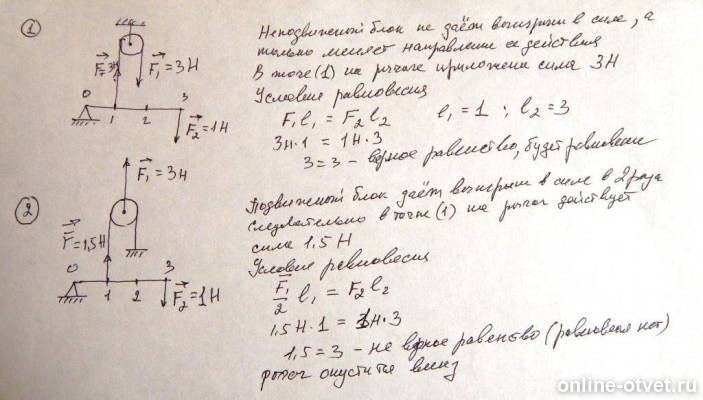 1
F=3Н
F₁=3Н
0
1
2
3
F₂=1Н
Неподвижный блок не даёт выигрыш в силе, а
только меняет направление ее действия
В точе (1) на рычаге приложена сила 3Н
Условие равновесия
F₁l₁ = F₂l₂ l₁=1 ; l₂=3
3Н·1=1Н·3
3=3 - верное равенство, будет равновесие
2
F₁=3Н
F=1,5Н
0
1
2
3
F₂=1Н
Подвижный блок даёт выигрыш в силе в 2 раза
следовательно в точке (1) на рычаг действует
сила 1,5Н
Условие равновесия
F₁/2 l₁ = F₂l₂
1,5Н·1=1Н·3
1,5=3 - не верное равенство (равновесия нет)
рычаг опустится вниз
online-otvet.ru